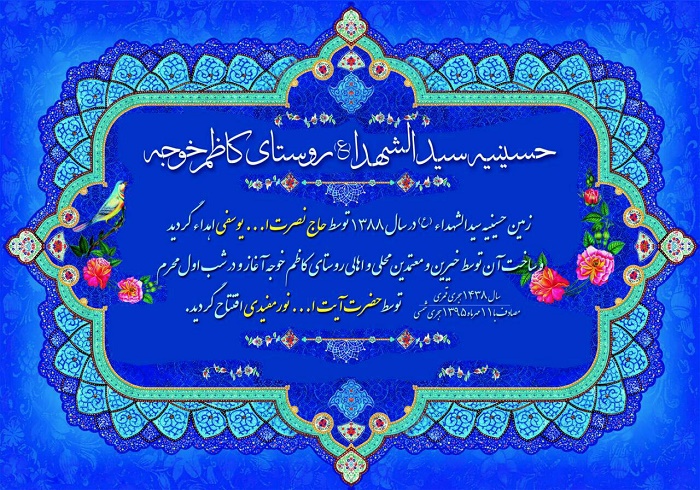 حسینیه سیدالشهداء (ع) روستای کاظم خوجه
زمین حسینیه سیدالشهداء (ع) در سال ۱۳۸۸ توسط حاج نصرت ا... یوسفی اهداء گردید
و ساخت آن توسط خیرین و معتمدین محلی و اهالی روستای کاظم خوجه آغاز و در شب اول محرم
سال ۱۴۳۸ هجری قمری
مصادف با ۱۱ مهرماه ۱۳۹۵ هجری شمسی
توسط حضرت آیت ا... نورمفیدی افتتاح گردید.